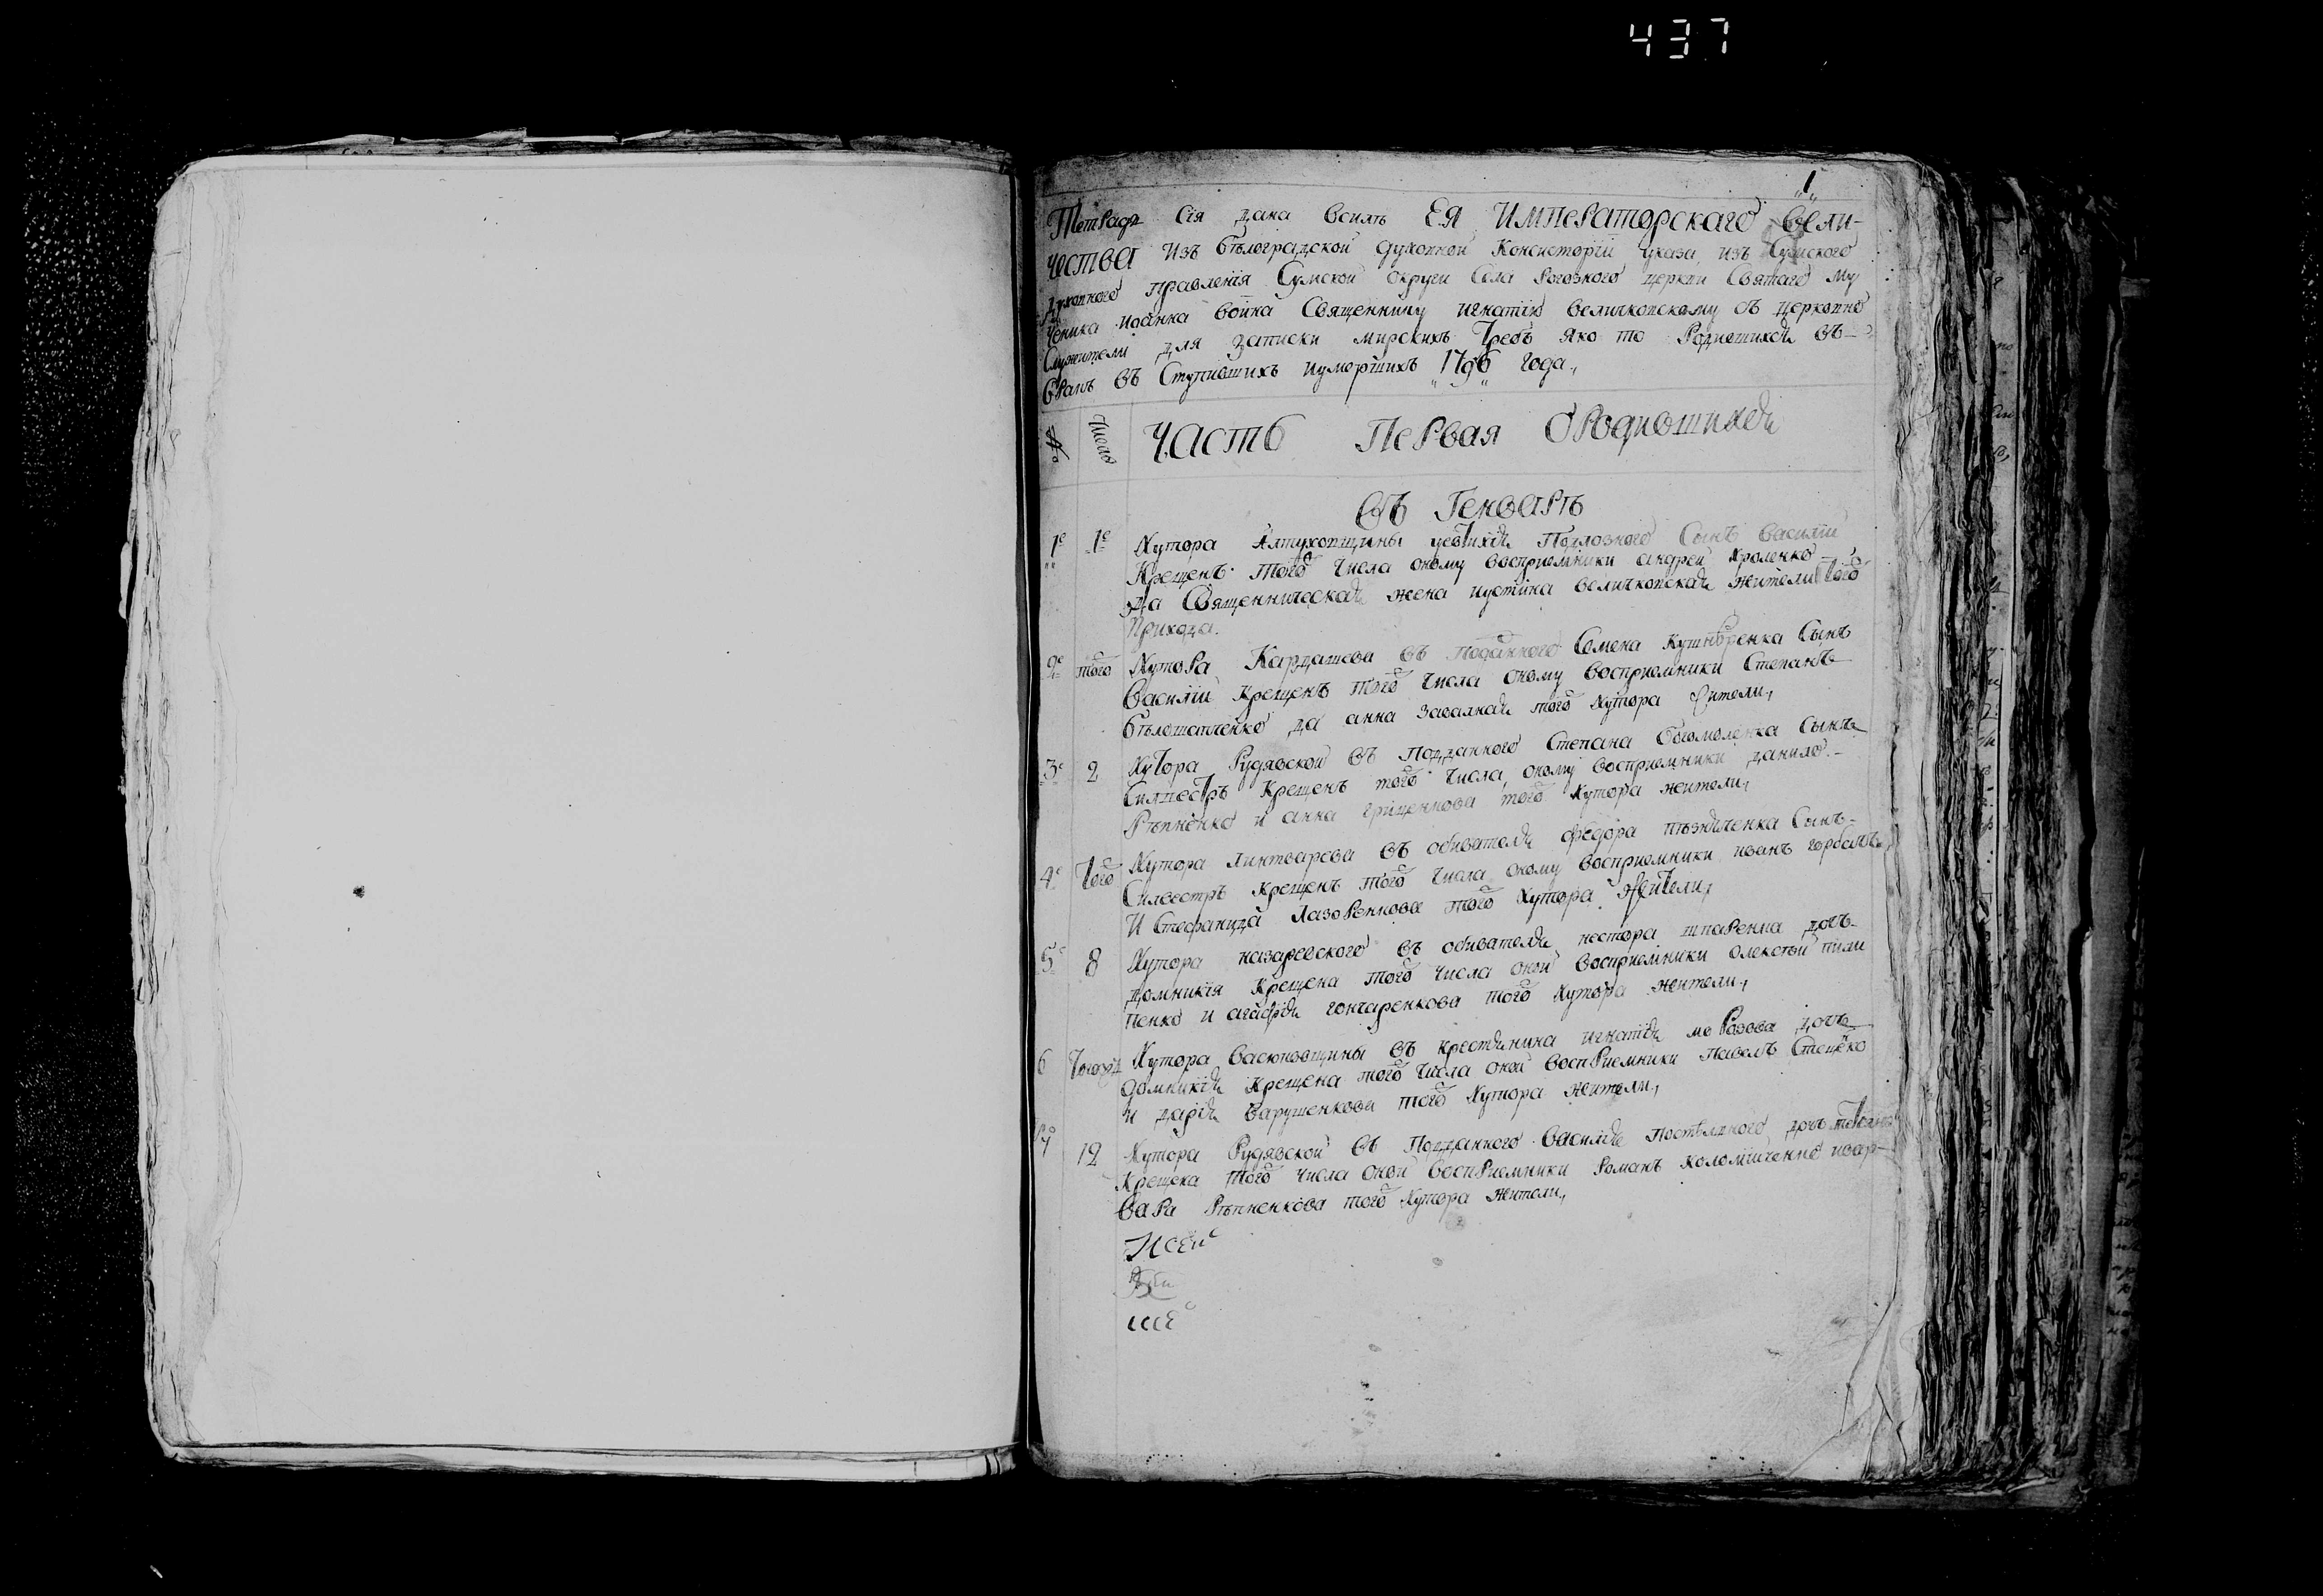 437
1
Тетрадь сія дана Всилъ ЕЯ ИМПЕРАТОРСКАГО Вели-
чества Изъ бѣлоградской духовной Консисторіи указа изъ Сумского
духовного правленія Сумской округи Села Рогозного церкви Святаго му
ченика иоанна воина Священнику игнатію величковскому съ церковно
Служители для записки мирскихъ Требъ яко то Родившихся въ
бракъ въ Ступившихъ иумершихъ 1796 года
№ Число Часть Первая О Родившихся
Въ Генварѣ
1е 1е Хутора Алтуховщины Сынъ василій
Крещенъ того Числа оному восприемники андрей Кроленко
да Священническая жена иустина величковская жители того
прихода.
2е того Хутора Кардашева въ поданного Семена Кушніренка Сынъ
Василій Крещенъ того Числа оному восприемники Степанъ
бѣлошапченко да анна Завалная того Хутора жители
3е 2 Хутора Рудявской въ Подданного Степана богомоленка Сынъ
Силвестръ Крещенъ того Числа оному восприемники данило
Рѣпненко и анна грищенкова того Хутора жители
4е Того Хутора линтварева въ обивателя федора пѣхниченка Сынъ
Силвестръ Крещенъ того Числа оному восприемники иванъ горбачъ
И Стефанида лазоренкова того Хутора Жители
5е 8 Хутора назаревского въ обивателя нестора шпаренка дочь
домникія Крещена того Числа оной восприемники олексѣй пили
пенко и агафія гончаренкова того Хутора жители
6 Хутора Васюковщины въ крестянина игнатія морозова дочь
домникія Крещена того Числа оной восприемники павелъ Стецко
и дарія варушенкова того Хутора жители
12 Хутора Рудявской въ Подданного василія дочь
Крещена того Числа оной восприемники романъ коломійченко ивар-
вара Рѣпненкова того Хутора жители